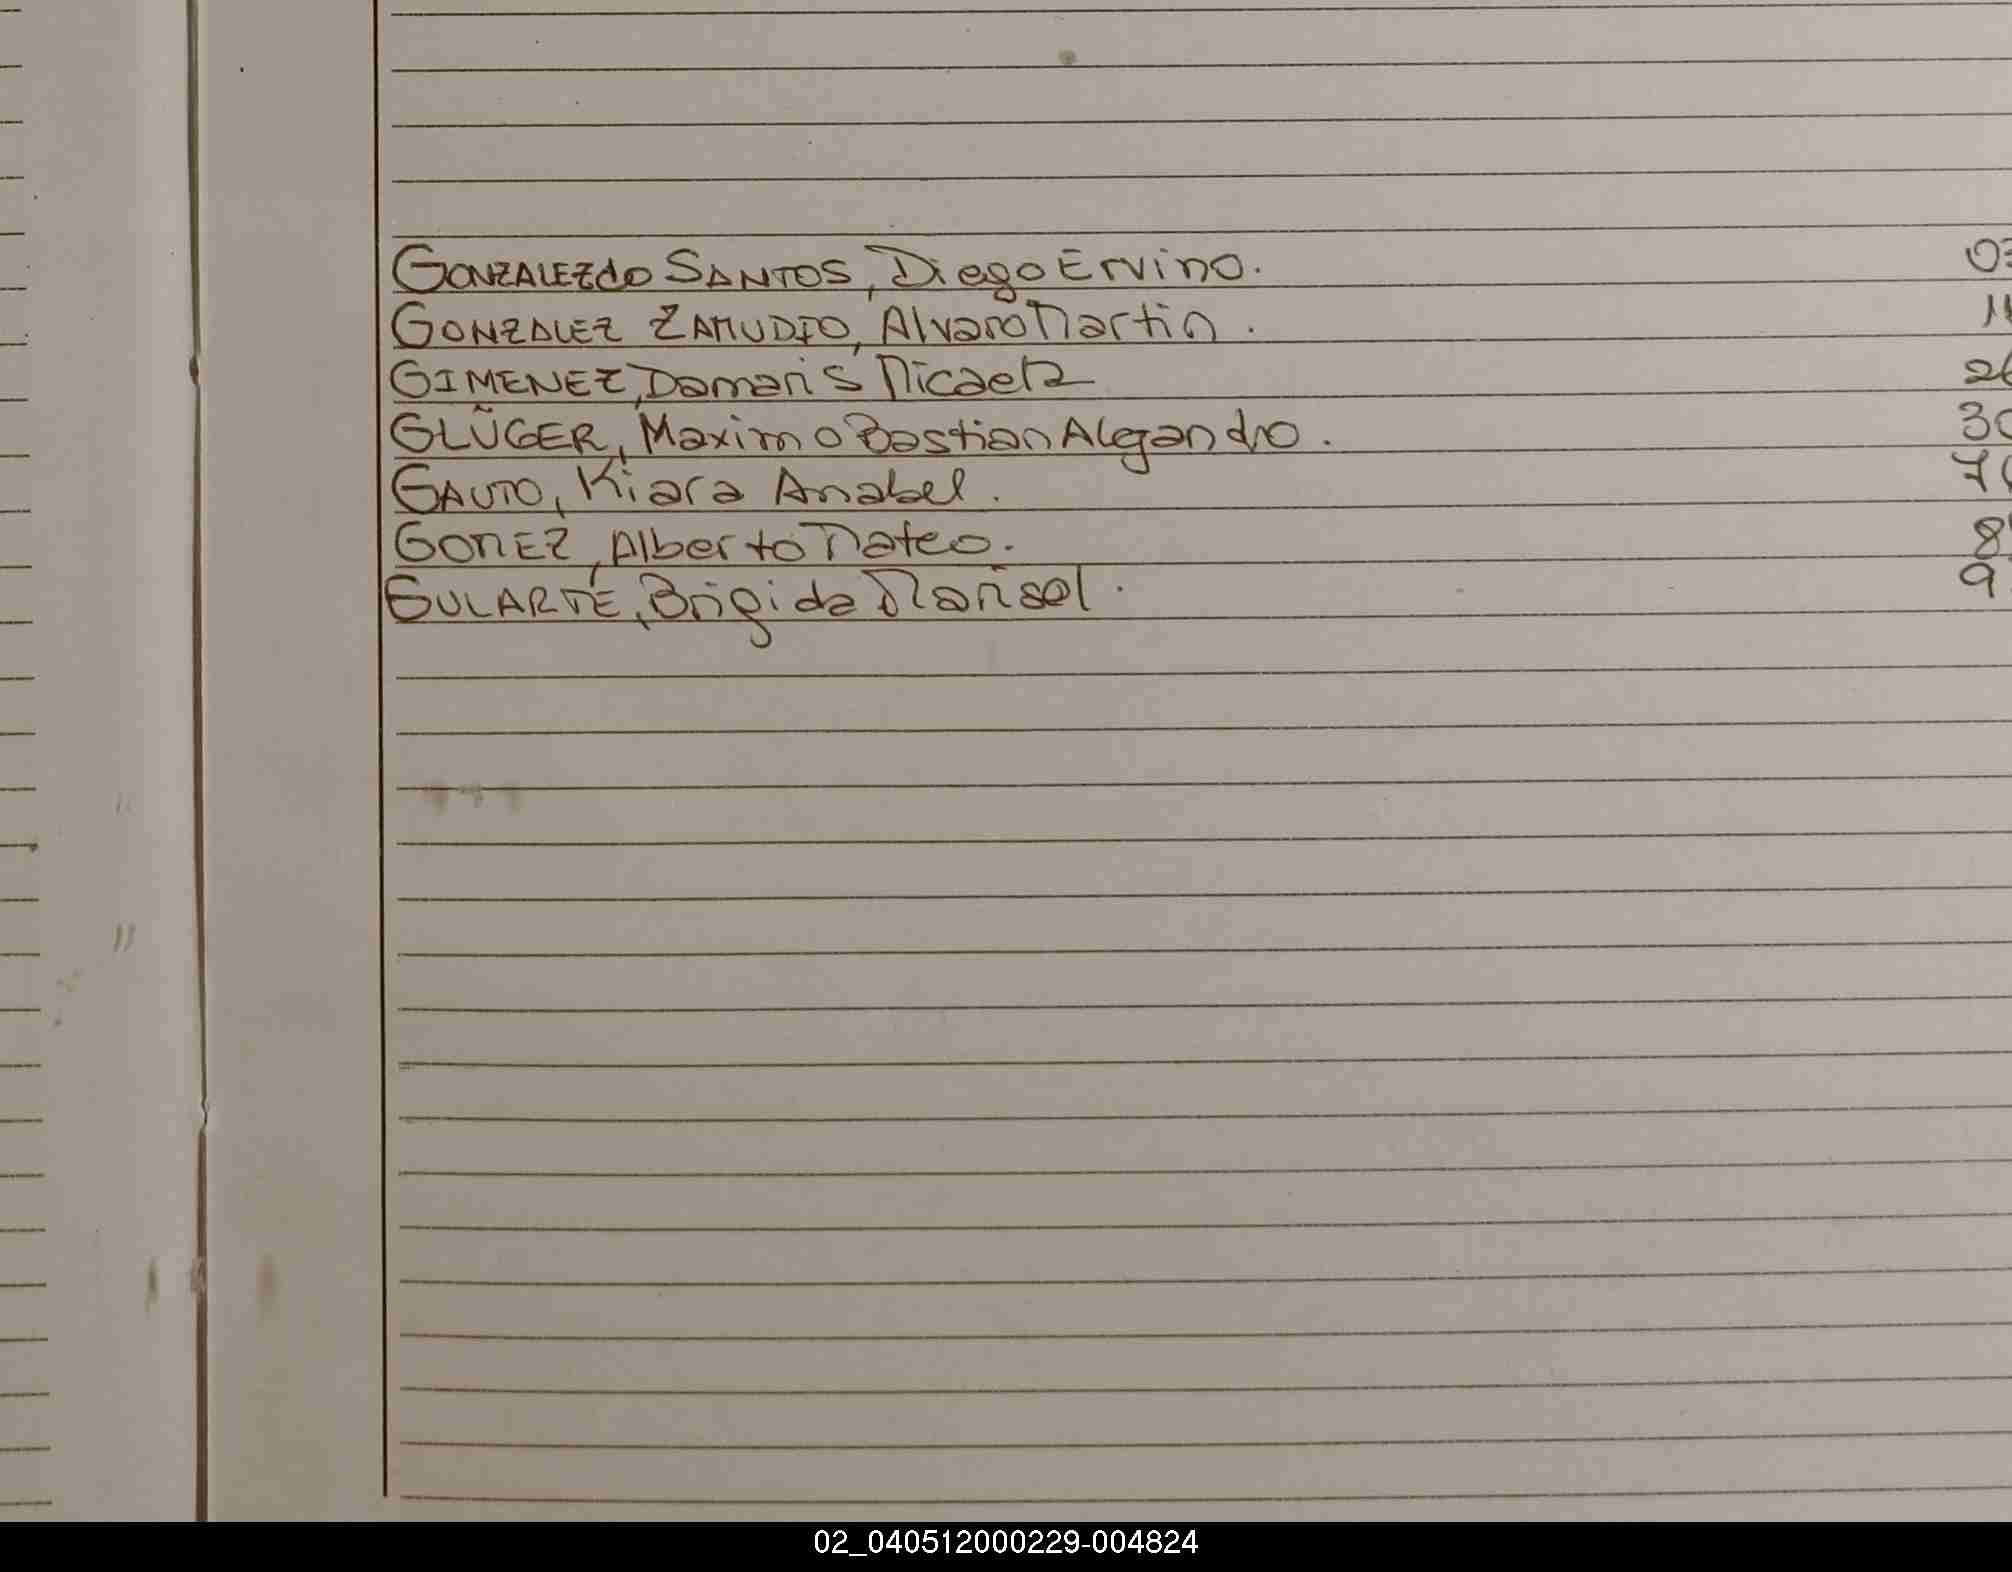 GONZALEZ do SANTOS, Diego Ervino. 03
GONZALEZ ZAMUDIO, Alvaro Martin.
GIMENEZ, Damaris Micaela
GLÜGER, Maximo Bastian Alejandro. 30
GAUTO, Kiara Anabel.
GOMEZ, Alberto Mateo.
GULARTE, Brigida Marisol.
02_040512000229-004824